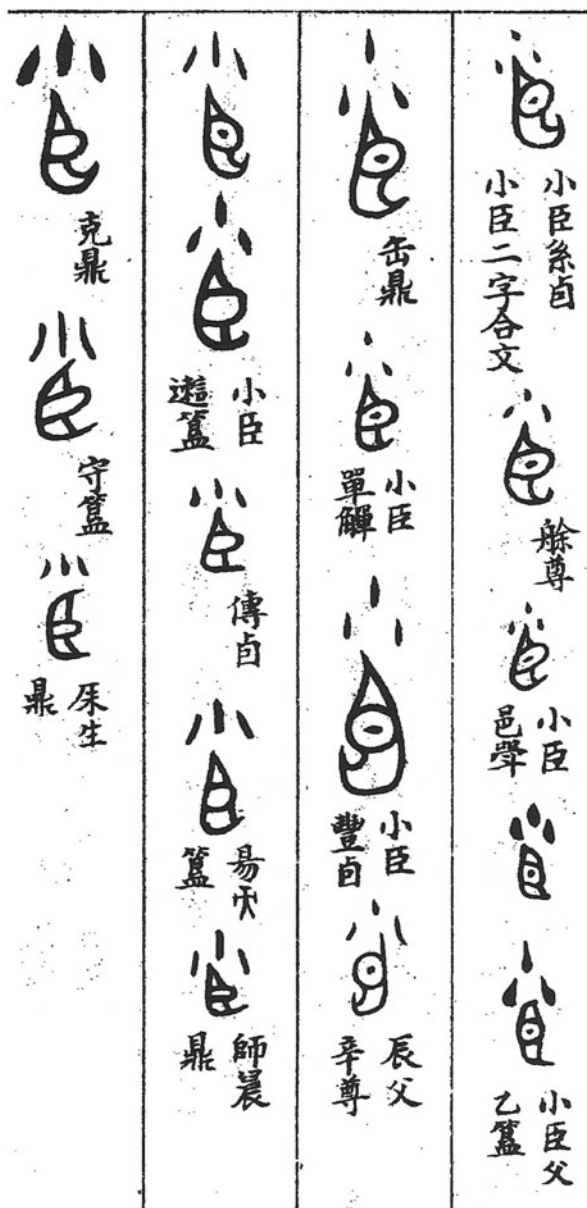 小臣系卣
小臣二字合文
艅尊
小臣
邑斝
小臣父
乙簋
缶鼎
小臣
單觶
小臣
豐卣
辰父
辛尊
小臣
簋
傳卣
易
簋
師晨
鼎
克鼎
守簋
生
鼎